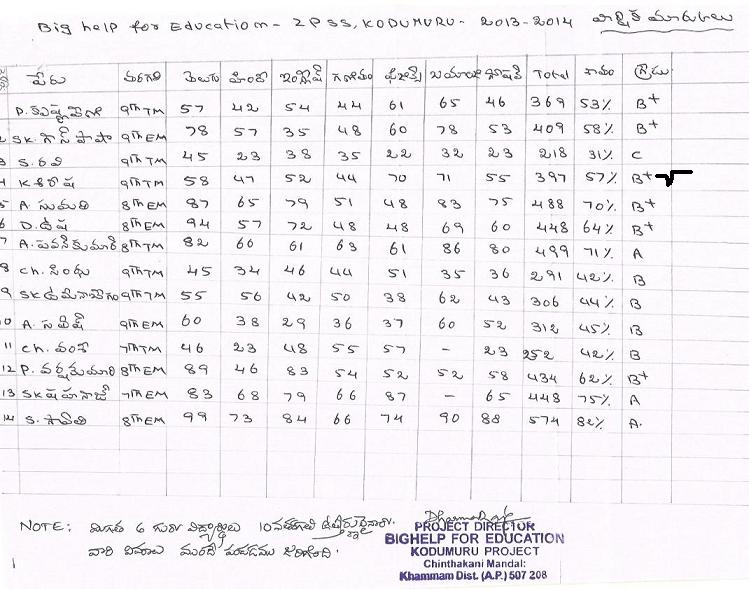 Big help for Education - ZPSS, KODUMURU - 2013-2014 వార్షిక మార్కులు
పేరు తరగతి తెలుగు హింది ఇంగ్లీష్ గణితం ఫిజిక్స్ బయాలజీ సోషల్ Total శాతం గ్రేడు
P. కృష్ణవేణి 9th TM 57 42 54 44 61 65 46 369 53% B+
2 SK. గౌస్ పాషా 9th EM 78 57 35 48 60 78 53 409 58% B+
3 S. రవి 9th TM 45 23 38 35 22 32 23 218 31% C
4 K శిరీష 9th TM 58 47 52 44 70 71 55 397 57% B+
5 A. సుమతి 8th EM 87 65 79 51 48 83 75 488 70% B+
6 D. ఉష 8th EM 94 57 72 48 48 69 60 448 64% B+
7 A. పవన్ కుమార్ 8th TM 82 60 61 63 61 86 80 499 71% A
8 Ch. సింధు 9th TM 45 34 46 44 51 35 36 291 42% B
9 SK 9th TM 55 56 42 50 38 62 43 306 44% B
10 A. 9th EM 60 38 29 36 37 60 52 312 45% B
11 Ch. వంశీ 7th TM 46 23 48 55 57 - 23 252 42% B
12 P. వర్షకుమారి 8th EM 89 46 83 54 52 52 58 434 62% B+
13 SK షహనాజ్ 7th EM 83 68 79 66 87 - 65 448 75% A
14 S. 8th EM 99 73 84 66 74 90 88 574 82% A.
NOTE: మిగత 6 గురు విద్యార్థులు 10వతరగతి ఉత్తీర్ణులైనారు.
వారి వివరాలు ముందే పంపడము జరిగింది.
PROJECT DIRECTOR
BIGHELP FOR EDUCATION
KODUMURU PROJECT
Chinthakani Mandal:
Khammam Dist. (A.P.) 507 208